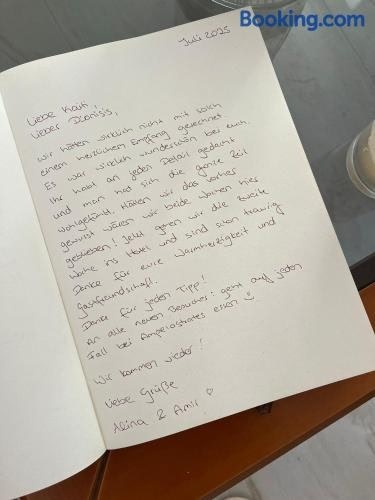 Booking.com
Juli 2025
Liebe Kaiti,
Lieber Dionisis,
wir hätten wirklich nicht mit solch
einem herzlichen Empfang gerechnet.
Es war wirklich wunderschön bei euch.
Ihr habt an jeden Detail gedacht
und man hat sich die ganze Zeit
wohlgefühlt. Hätten wir das vorher
gewusst wären wir beide Wochen hier
geblieben! Jetzt gehen wir die zweite
Woche ins Hotel und sind schon traurig
Danke für eure Warmherzigkeit und
Gastfreundschaft.
Danke für jeden Tipp!
An alle neuen Besucher: geht auf jeden
Fall bei Ampelostrates essen
Wir kommen wieder!
Liebe Grüße
Alina & Amir